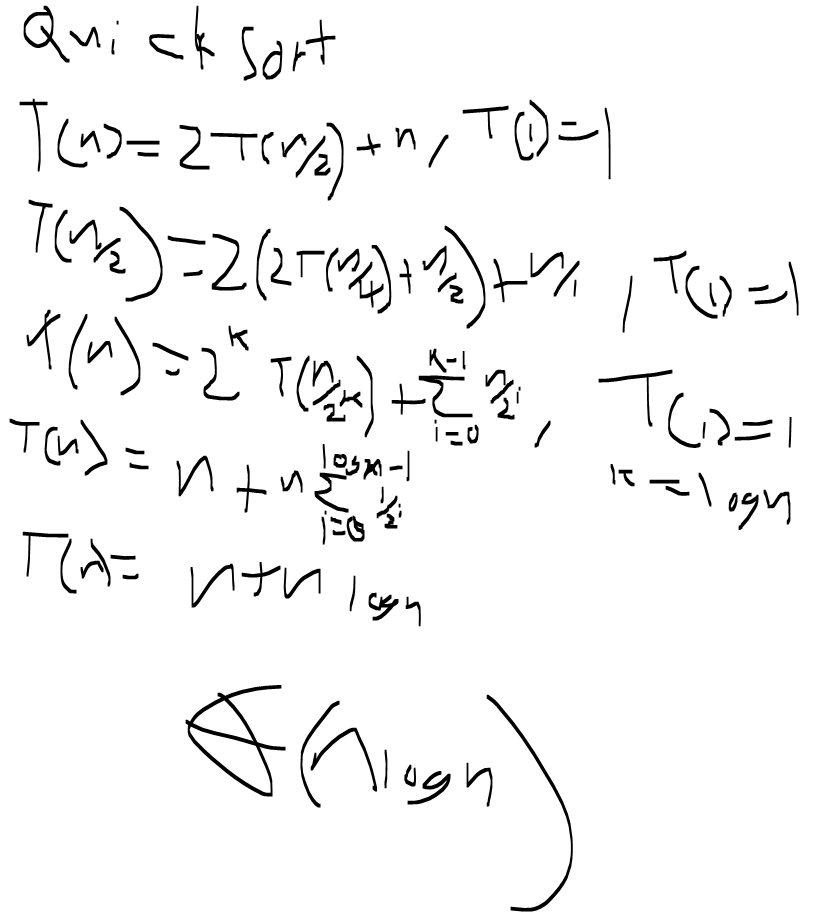 Quick Sort
T(n) = 2T(n/2) + n, T(1) = 1
T(n/2) = 2(2T(n/4) + n/2) + n/1, T(1) = 1
T(n) = 2^k T(n/2^k) + ∑_{i=0}^{k-1} n/2^i, T(1) = 1
k = log n
T(n) = n + n ∑_{i=0}^{log n - 1} 1/2^i
T(n) = n + n log n
θ(n log n)